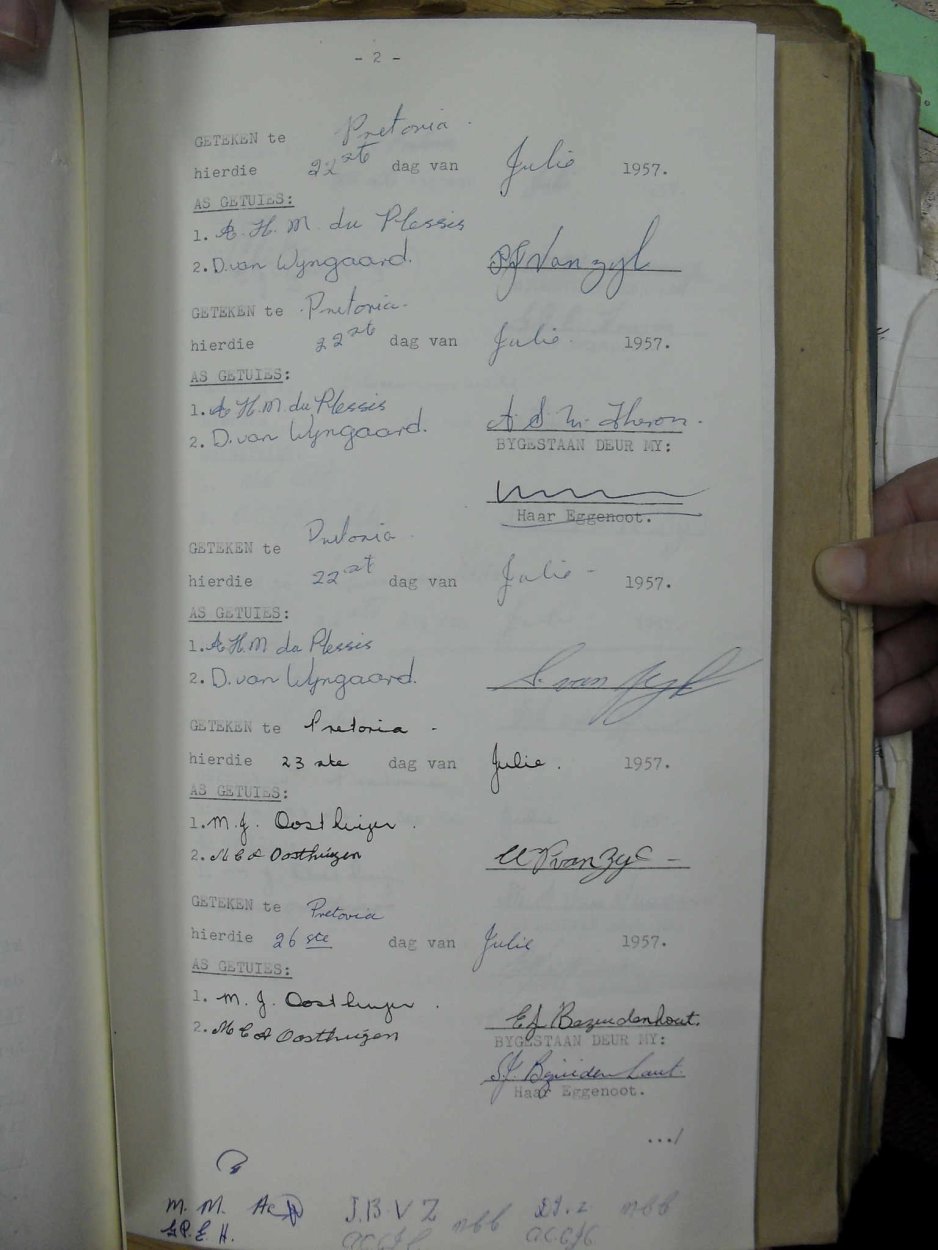 - 2 -
GETEKEN te Pretoria.
hierdie 22ste dag van Julie 1957.
AS GETUIES:
1. A. H. M. du Plessis
2. D. van Wyngaard. PJ Van Zyl
GETEKEN te Pretoria.
hierdie 22ste dag van Julie 1957.
AS GETUIES:
1. A H. M. du Plessis
2. D. van Wyngaard. A S M Theron.
BYGESTAAN DEUR MY:
Haar Eggenoot.
GETEKEN te Pretoria.
hierdie 22st dag van Julie - 1957.
AS GETUIES:
1. A H. M du Plessis
2. D. van Wyngaard. S. van Zyl
GETEKEN te Pretoria -
hierdie 23 ste dag van Julie. 1957.
AS GETUIES:
1. M. J. Oosthuizen.
2. M C A Oosthuizen van Zyl -
GETEKEN te Pretoria
hierdie 26 ste dag van Julie 1957.
AS GETUIES:
1. M. J. Oosthuizen.
2. M C A Oosthuizen EJ Bezuidenhout.
BYGESTAAN DEUR MY:
S.J. Bezuidenhout.
Haar Eggenoot.
.../
M. M. J.B.V.Z